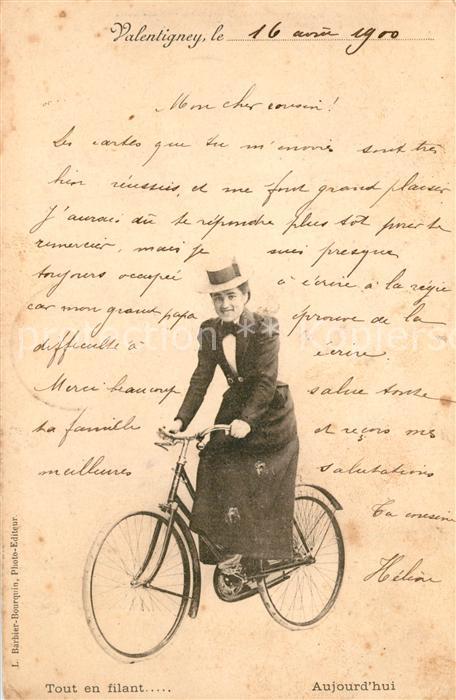 Valentigney, le 16 août 1900
Mon cher cousin!
Les cartes que tu m'envoies sont très
bien réussies, et me font grand plaisir
J'aurai dû te répondre plus tôt pour te
remercier, mais je suis presque
toujours occupée à écrire à la
car mon grand papa éprouve de la
difficulté à écrire.
Merci beaucoup salue toute
ta famille et reçois mes
meilleures salutations
Ta cousine
Hélène
L. Barbier-Bourquin, Photo-Editeur.
Tout en filant..... Aujourd'hui